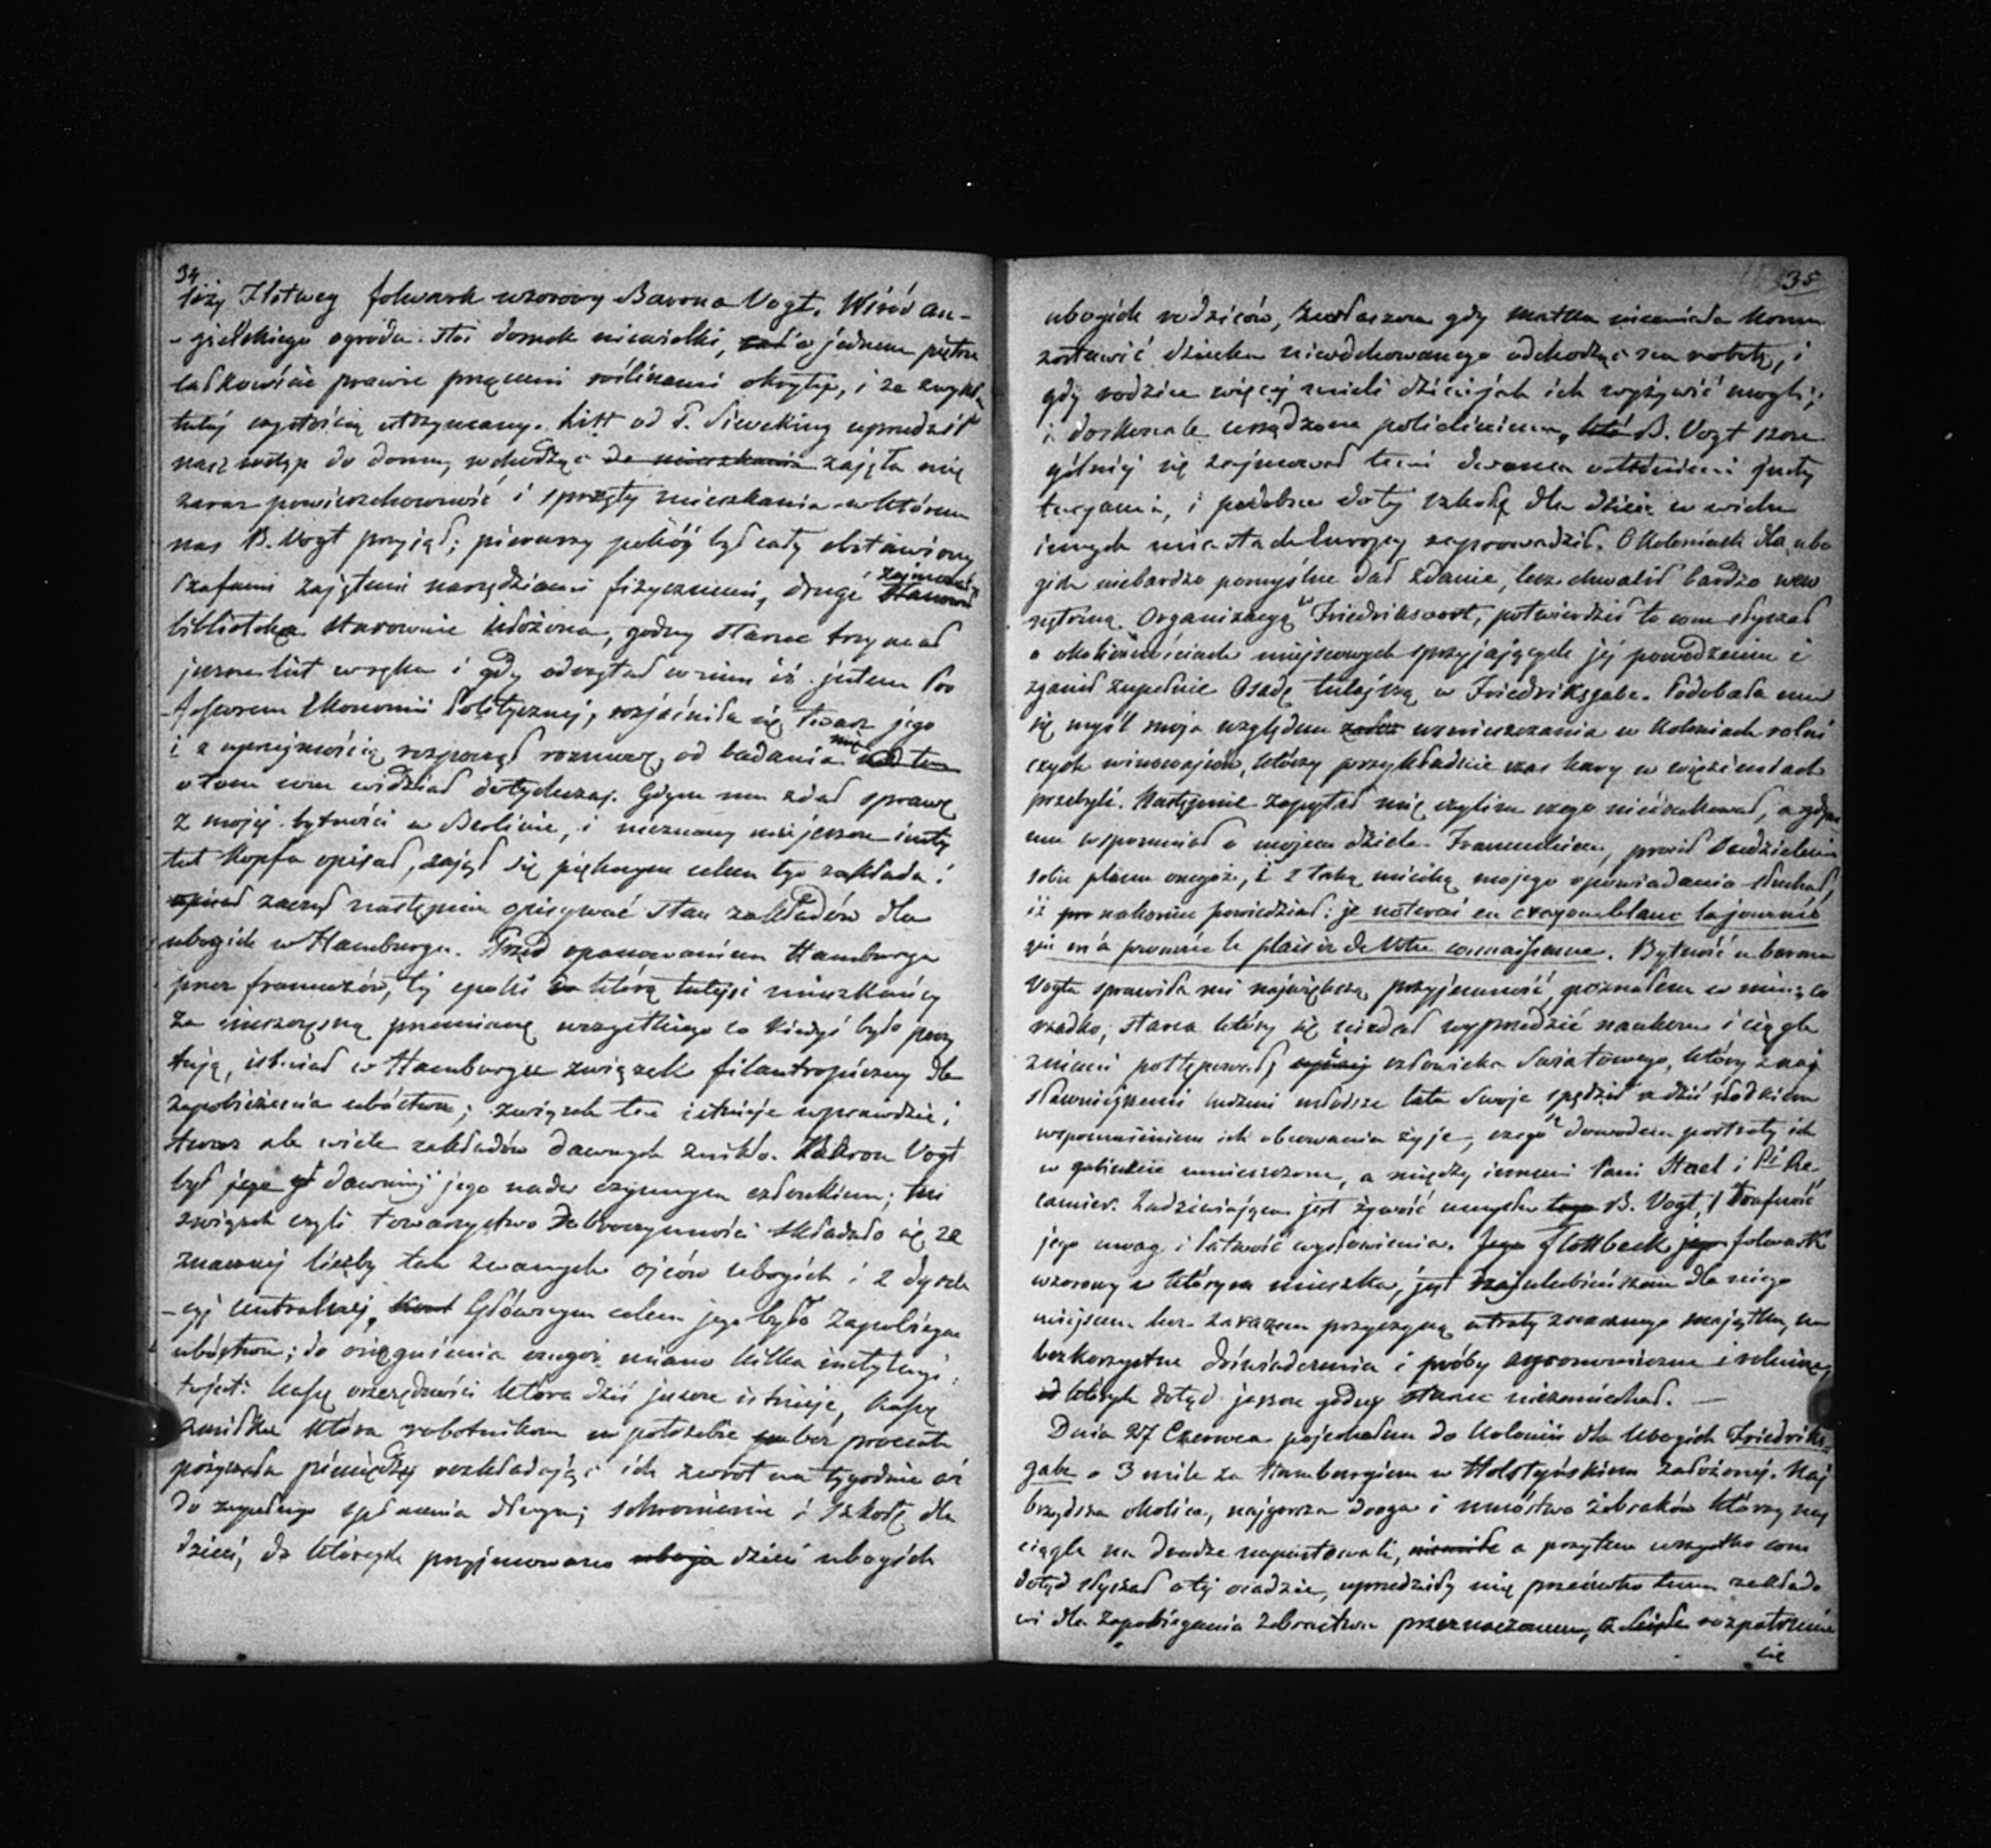 34
leży Flotweg folwark wzorowy Barona Vogt. Wśród an-
-gielskiego ogrodu stoi domek niewielki, o jednem piętrze
całkowicie prawie pnącemi roślinami okryty, i ze zwykłą
tutaj czystością utrzymany. List od P. Sieveking uprzedził
nasz wstęp do domu, wchodząc do mieszkania zajęła mię
zaraz powierzchowność i sprzęty mieszkania w którem
nas B. Vogt przyjął; pierwszy pokój był cały obstawiony
szafami zajętemi narzędziami fizycznemi, drugi
biblioteka starownie ułożona, godny starzec trzymał
jeszcze list w ręku i gdy odczytał w nim iż jestem Pro
-fessorem Ekonomii Politycznej, rozjaśniła się twarz jego
i z uprzejmością rozpoczął rozmowę, od badania mię
o tem com widział dotychczas. Gdym mu zdał sprawę
z mojej bytności w Berlinie, i nieznany mu jeszcze insty
tut Kopfa opisał, zajął się pięknym celem tego zakładu i
opisał zaczął następnie opisywać stan zakładów dla
ubogich w Hamburgu. Przed opanowaniem Hamburga
przez francuzów, tej epoki którą tutejsi mieszkańcy
za nieszczęsną przemianę wszystkiego co kiedyś było poczy
tują, istniał w Hamburgu związek filantropiczny dla
zapobieżenia ubóstwu; związek ten istnieje wprawdzie i
teraz ale wiele zakładów dawnych znikło. Baron Vogt
był jego dawniej jego nader czynnym członkiem; ten
związek czyli towarzystwo Dobroczynności składało się ze
znacznej liczby tak zwanych ojców ubogich i z dyrek
-cyi centralnej. Głównym celem jego było zapobiegać
ubóstwu; do osiągnienia czegoż miano kilka instytucyi:
to jest: kassę oszczędności która dziś jeszcze istnieje, kassę
zaniżku która robotnikom w potrzebie bez procentu
pożyczała pieniędzy rozkładając ich zwrot na tygodnie aż
do zupełnego spłacenia długu; schronienie i szkołę dla
dzieci, do których przyjmowano ubogie dzieci ubogich
35
ubogich rodziców, zwłaszcza gdy matka niemiała komu
zostawić dziecka niewychowanego odchodząc na robotę, i
gdy rodzice więcej mieli dzieci jak ich wyżywić mogli;
i doskonale urządzone policlinicum, B. Vogt szcze
gólniej się zajmował temi dwoma ostatniemi insty
tucyami, i podobne do tej szkołę dla dzieci w wielu
innych miastach Europy zaprowadził. O Koloniach dla ubo
gich niebardzo pomyślne dał zdanie, lecz chwalił bardzo wew
nętrzną Organizacyą w Friedriksoord, potwierdził to com słyszał
o okolicznościach miejscowych sprzyjających jej powodzeniu i
zganił zupełnie Osadę tutejszą w Friedriksgabe. Podobała mu
się myśl moja względem umieszczania w koloniach rolni
czych winowajców, którzy przykładnie czas kary w więzieniach
przebyli. Następnie zapytał mię czylim czego niedrukował, a gdym
mu wspomniał o mojem dziele Frumentarium, prosił o udzielenie
sobie planu onegoż, i z taką uciechą mojego opowiadania słuchał,
iż pro nakoniec powiedział: je noterai en crayon blanc la journée
qui m'a procuré le plaisir de Votre connaissance. Bytność u barona
Vogta sprawiła mi największą przyjemność, poznałem w nim, co
rzadko, starca który się niedał wyprzedzić naukom i ciągle
z niemi postępował, i człowieka światowego, który z naj
sławniejszemi ludźmi młodsze lata swoje spędził a dziś słodkiem
wspomnieniem ich obcowania żyje, czego dowodem portrety ich
w gabinecie umieszczone, a między innemi Pani Stael i Pi Re
camier. Zadziwiającą jest żywość umysłu tego B. Vogt, i trafność
jego uwag i łatwość wysłowienia. Jego Flottbeck jego folwark
wzorowy w którym mieszka, jest najulubieńszem dla niego
miejscem lecz zarazem przyczyną utraty znacznego majątku, na
bezkorzystne doświadczenia i próby agronomiczne i rolnicze,
od których dotąd jeszcze godny starzec niezaniechał. —
Dnia 27 Czerwca pojechałem do Kolonii dla Ubogich Friedriks-
gabe o 3 mile za Hamburgiem w Holsztyńskiem założonej. Naj
brzydsza okolica, najgorsza droga i mnóstwo żebraków którzy nas
ciągle na drodze napastowali, a przytem wszystko com
dotąd słyszał o tej osadzie, uprzedziły mię przeciwko temu zakłado
wi dla zapobiegania żebractwu przeznaczonemu, a rozpatrzenie
się